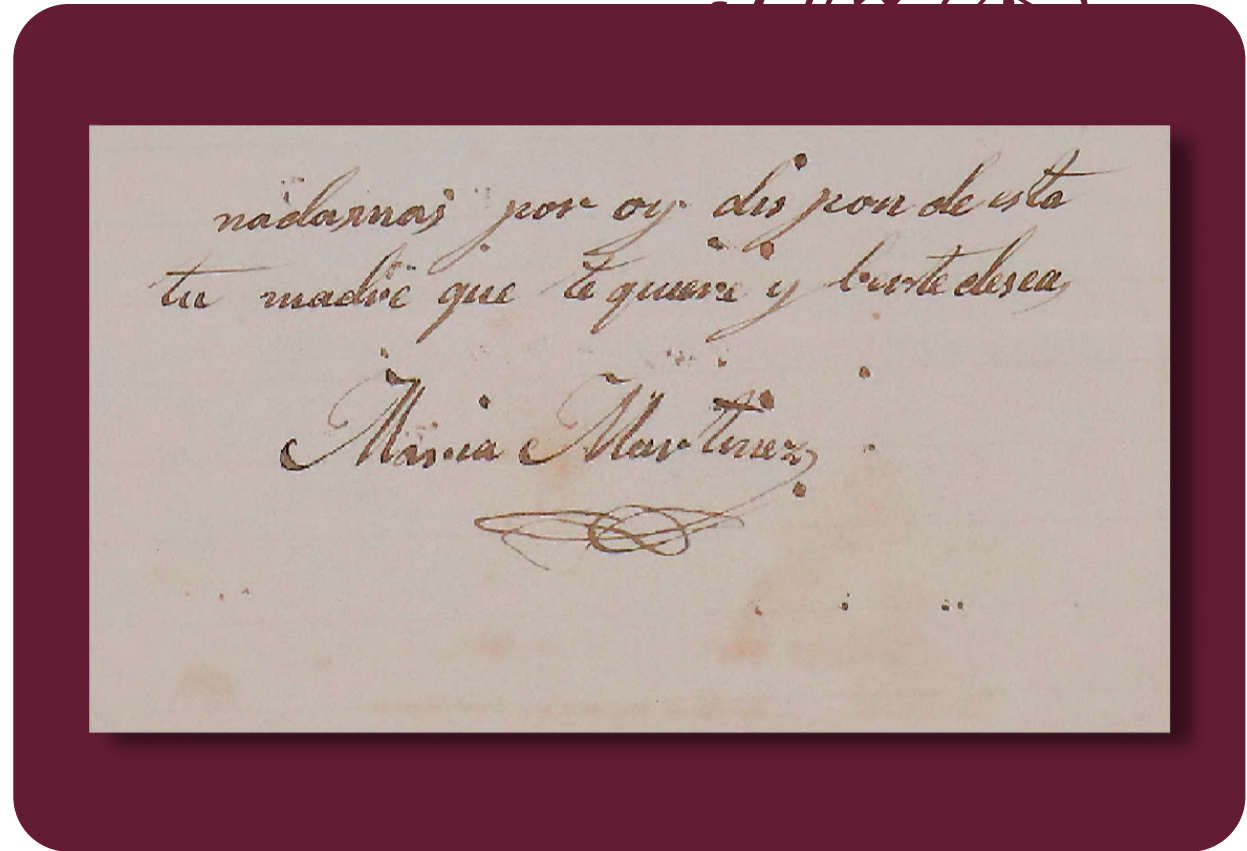 nadamas por oy dis pon de esta
tu madre que te quiere y berte desea
Maria Martinez